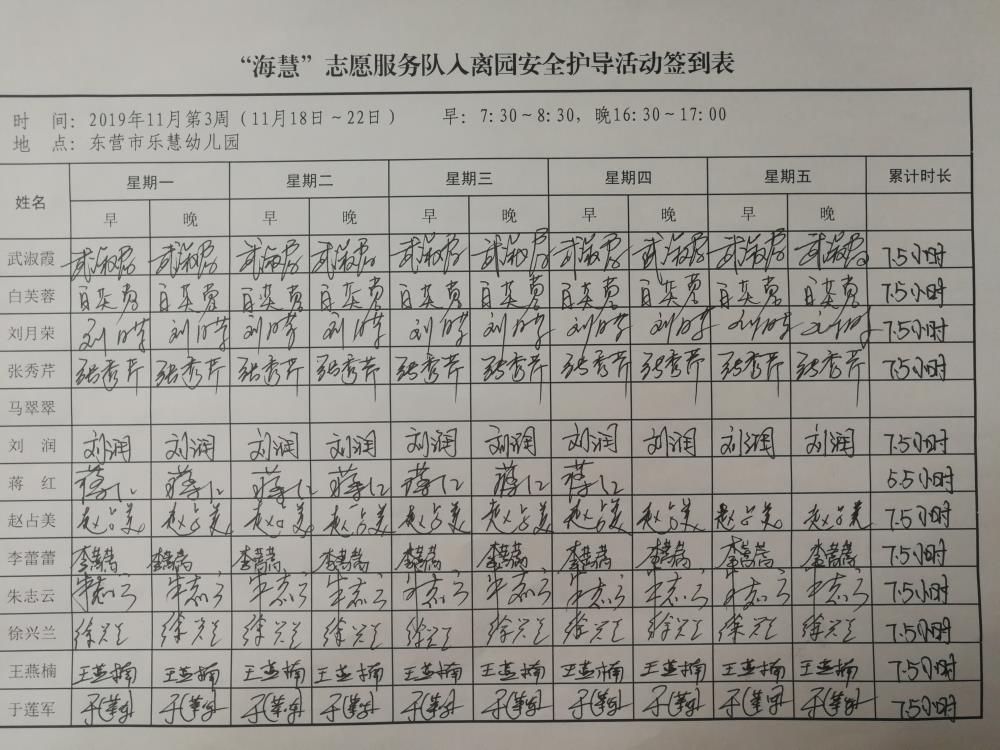 “海慧”志愿服务队入离园安全护导活动签到表
时 间：2019年11月第3周（11月18日～22日） 早：7:30～8:30，晚16:30～17:00
地 点：东营市乐慧幼儿园
姓名 星期一 星期二 星期三 星期四 星期五 累计时长
早 晚 早 晚 早 晚 早 晚 早 晚
武淑霞 武淑霞 武淑霞 武淑霞 武淑霞 武淑霞 武淑霞 武淑霞 武淑霞 武淑霞 武淑霞 7.5小时
白芙蓉 白芙蓉 白芙蓉 白芙蓉 白芙蓉 白芙蓉 白芙蓉 白芙蓉 白芙蓉 白芙蓉 白芙蓉 7.5小时
刘月荣 刘月荣 刘月荣 刘月荣 刘月荣 刘月荣 刘月荣 刘月荣 刘月荣 刘月荣 刘月荣 7.5小时
张秀芹 张秀芹 张秀芹 张秀芹 张秀芹 张秀芹 张秀芹 张秀芹 张秀芹 张秀芹 张秀芹 7.5小时
马翠翠
刘 润 刘润 刘润 刘润 刘润 刘润 刘润 刘润 刘润 刘润 刘润 7.5小时
蒋 红 蒋红 蒋红 蒋红 蒋红 蒋红 蒋红 蒋红 5.5小时
赵占美 赵占美 赵占美 赵占美 赵占美 赵占美 赵占美 赵占美 赵占美 赵占美 赵占美 7.5小时
李蕾蕾 李蕾蕾 李蕾蕾 李蕾蕾 李蕾蕾 李蕾蕾 李蕾蕾 李蕾蕾 李蕾蕾 李蕾蕾 李蕾蕾 7.5小时
朱志云 朱志云 朱志云 朱志云 朱志云 朱志云 朱志云 朱志云 朱志云 朱志云 朱志云 7.5小时
徐兴兰 徐兴兰 徐兴兰 徐兴兰 徐兴兰 徐兴兰 徐兴兰 徐兴兰 徐兴兰 徐兴兰 徐兴兰 7.5小时
王燕楠 王燕楠 王燕楠 王燕楠 王燕楠 王燕楠 王燕楠 王燕楠 王燕楠 王燕楠 王燕楠 7.5小时
于莲军 于莲军 于莲军 于莲军 于莲军 于莲军 于莲军 于莲军 于莲军 于莲军 于莲军 7.5小时